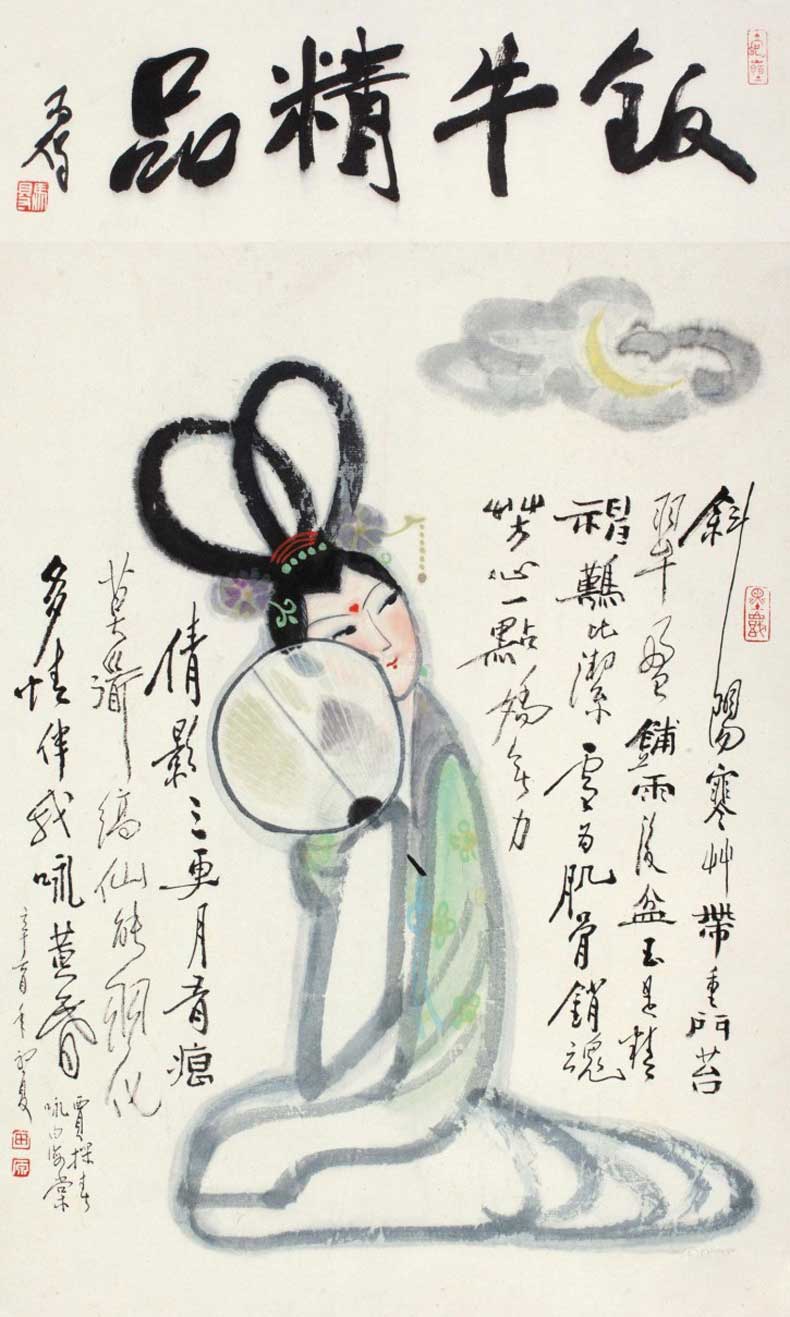 飯牛精品
馬得
斜陽寒艸帶重門苔
翠盈鋪雨後盆玉是精
神難比潔雪為肌骨銷魂
芳心一點嬌無力
倩影三更月有痕
莫道縞仙能羽化
多情伴我咏黃昏
辛酉年初夏
賈探春
咏白海棠
田原